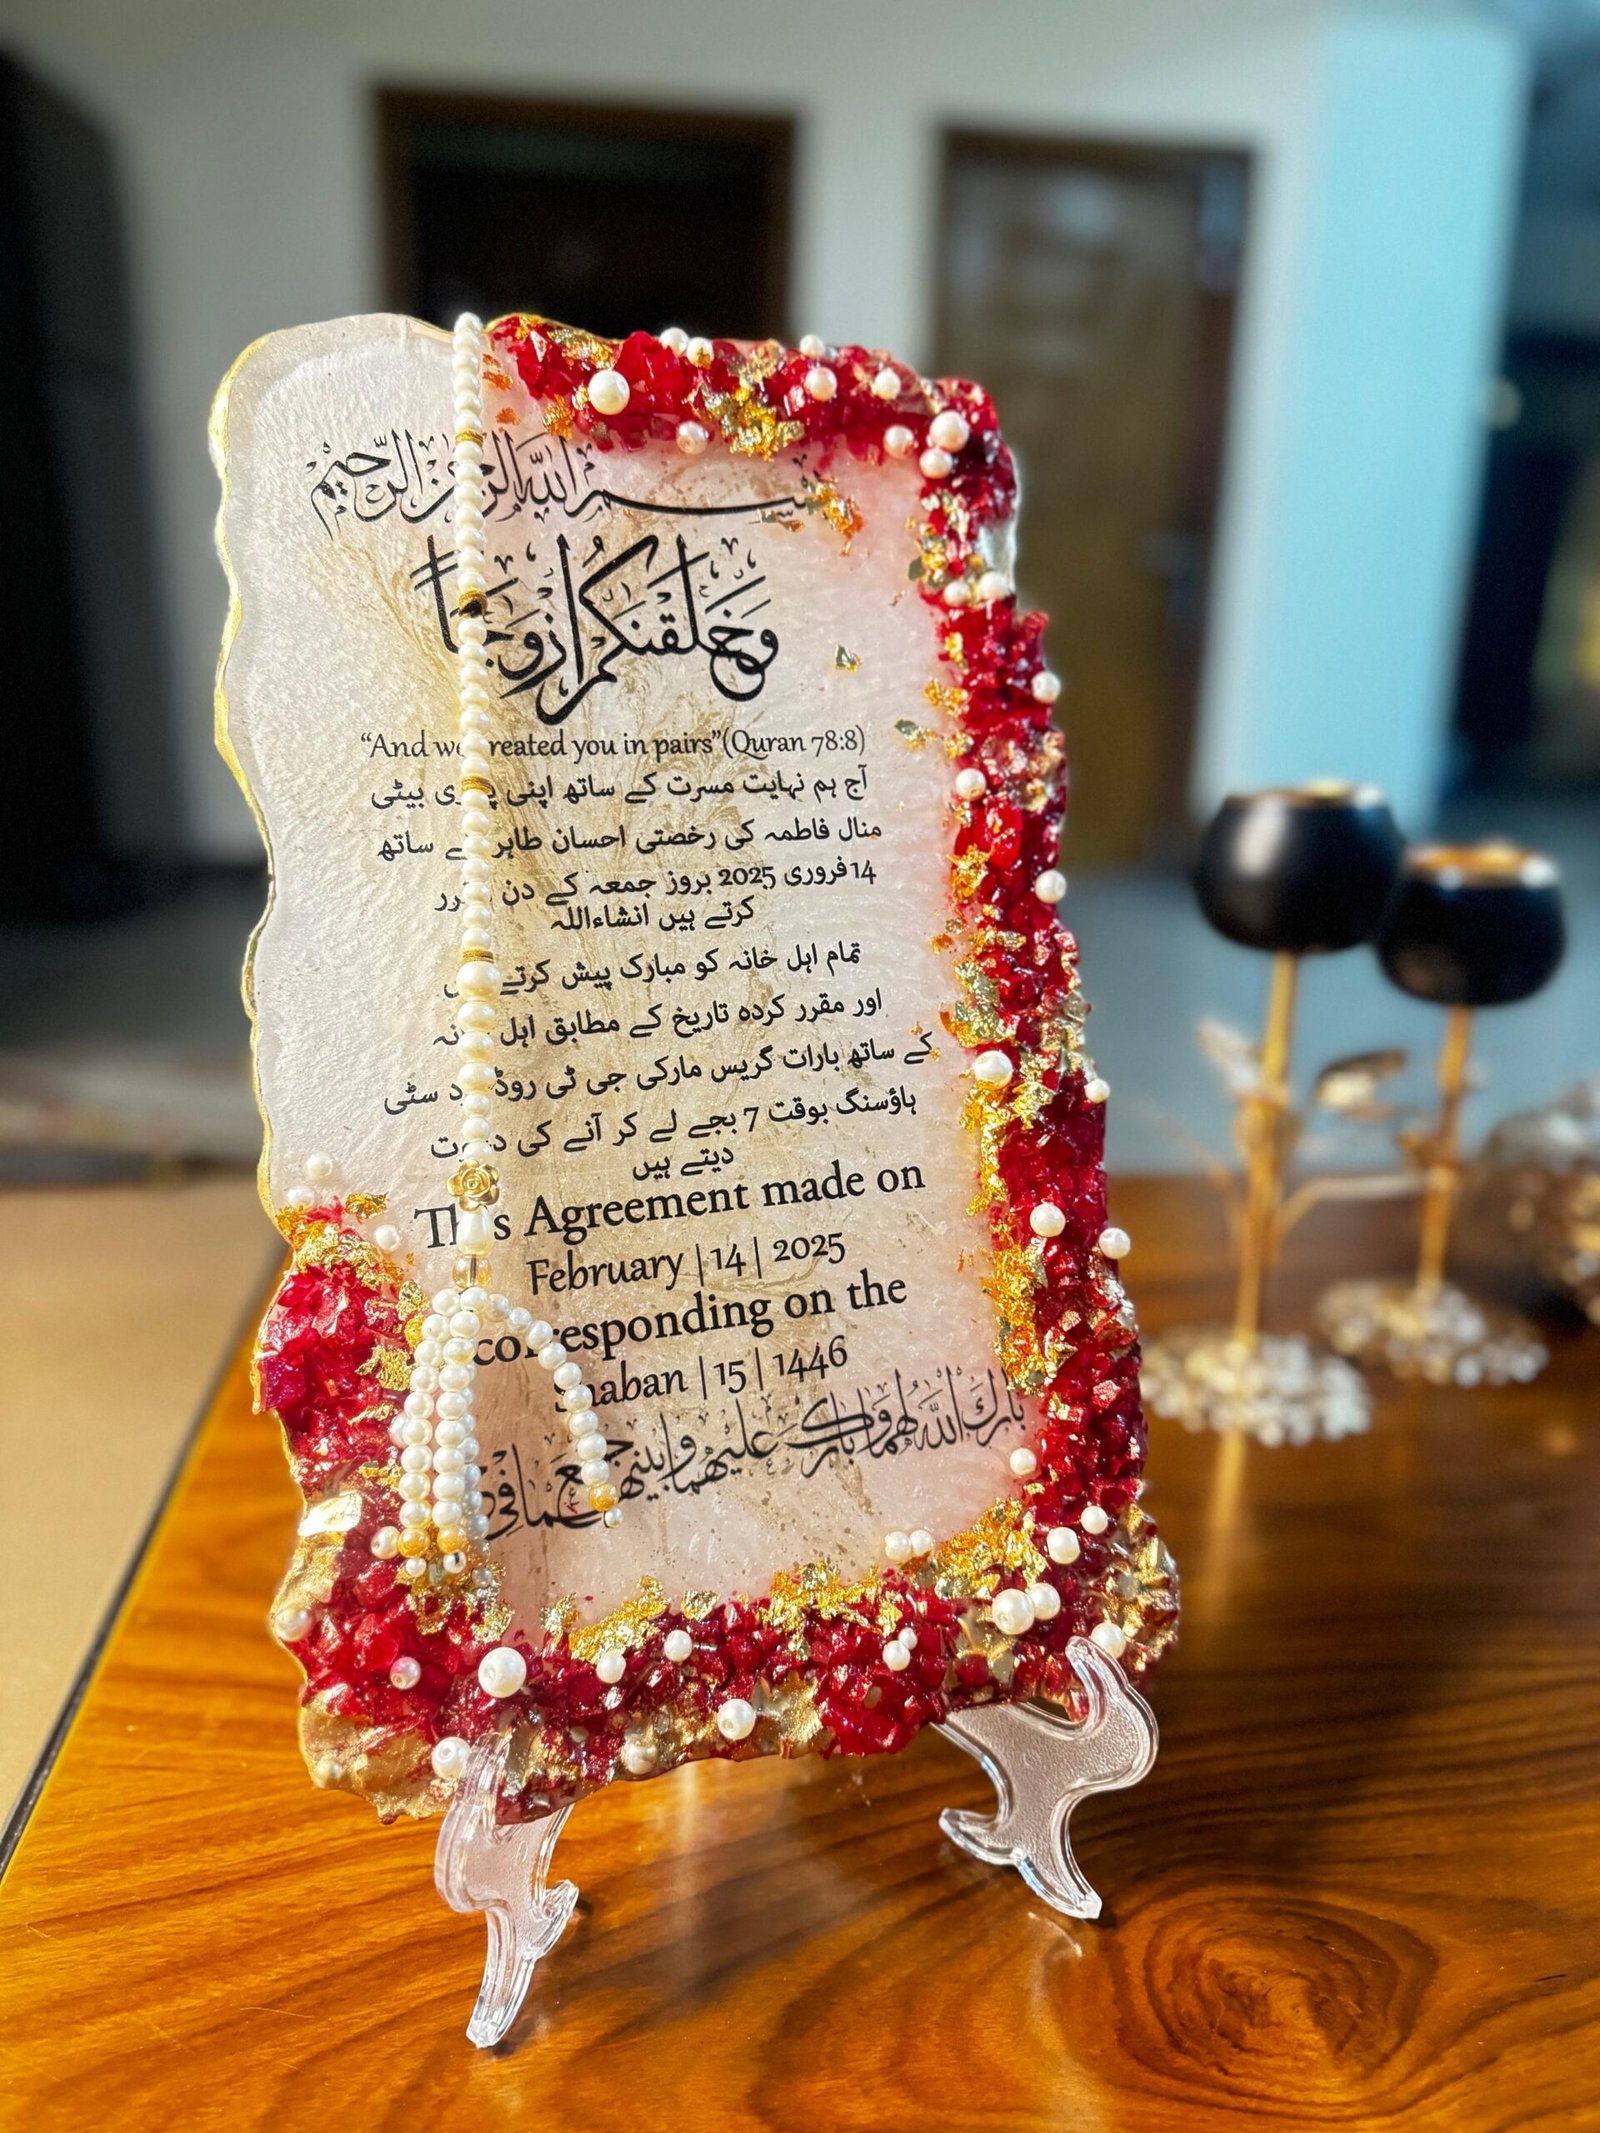 بسم الله الرحمن الرحيم
وَخَلَقْنَكُمْ اَزْوَجًا
“And we created you in pairs”(Quran 78:8)
آج ہم نہایت مسرت کے ساتھ اپنی پیاری بیٹی
منال فاطمہ کی رخصتی احسان طاہر کے ساتھ
14 فروری 2025 بروز جمعہ کے دن مقرر
کرتے ہیں انشاءاللہ
تمام اہل خانہ کو مبارک پیش کرتے ہیں
اور مقرر کردہ تاریخ کے مطابق اہل خانہ
کے ساتھ بارات گریس مارکی جی ٹی روڈ سٹی
ہاؤسنگ بوقت 7 بجے لے کر آنے کی دعوت
دیتے ہیں
This Agreement made on
February | 14 | 2025
corresponding on the
Shaban | 15 | 1446
بارك الله لهما وبارك عليهما وجمع بينهما في